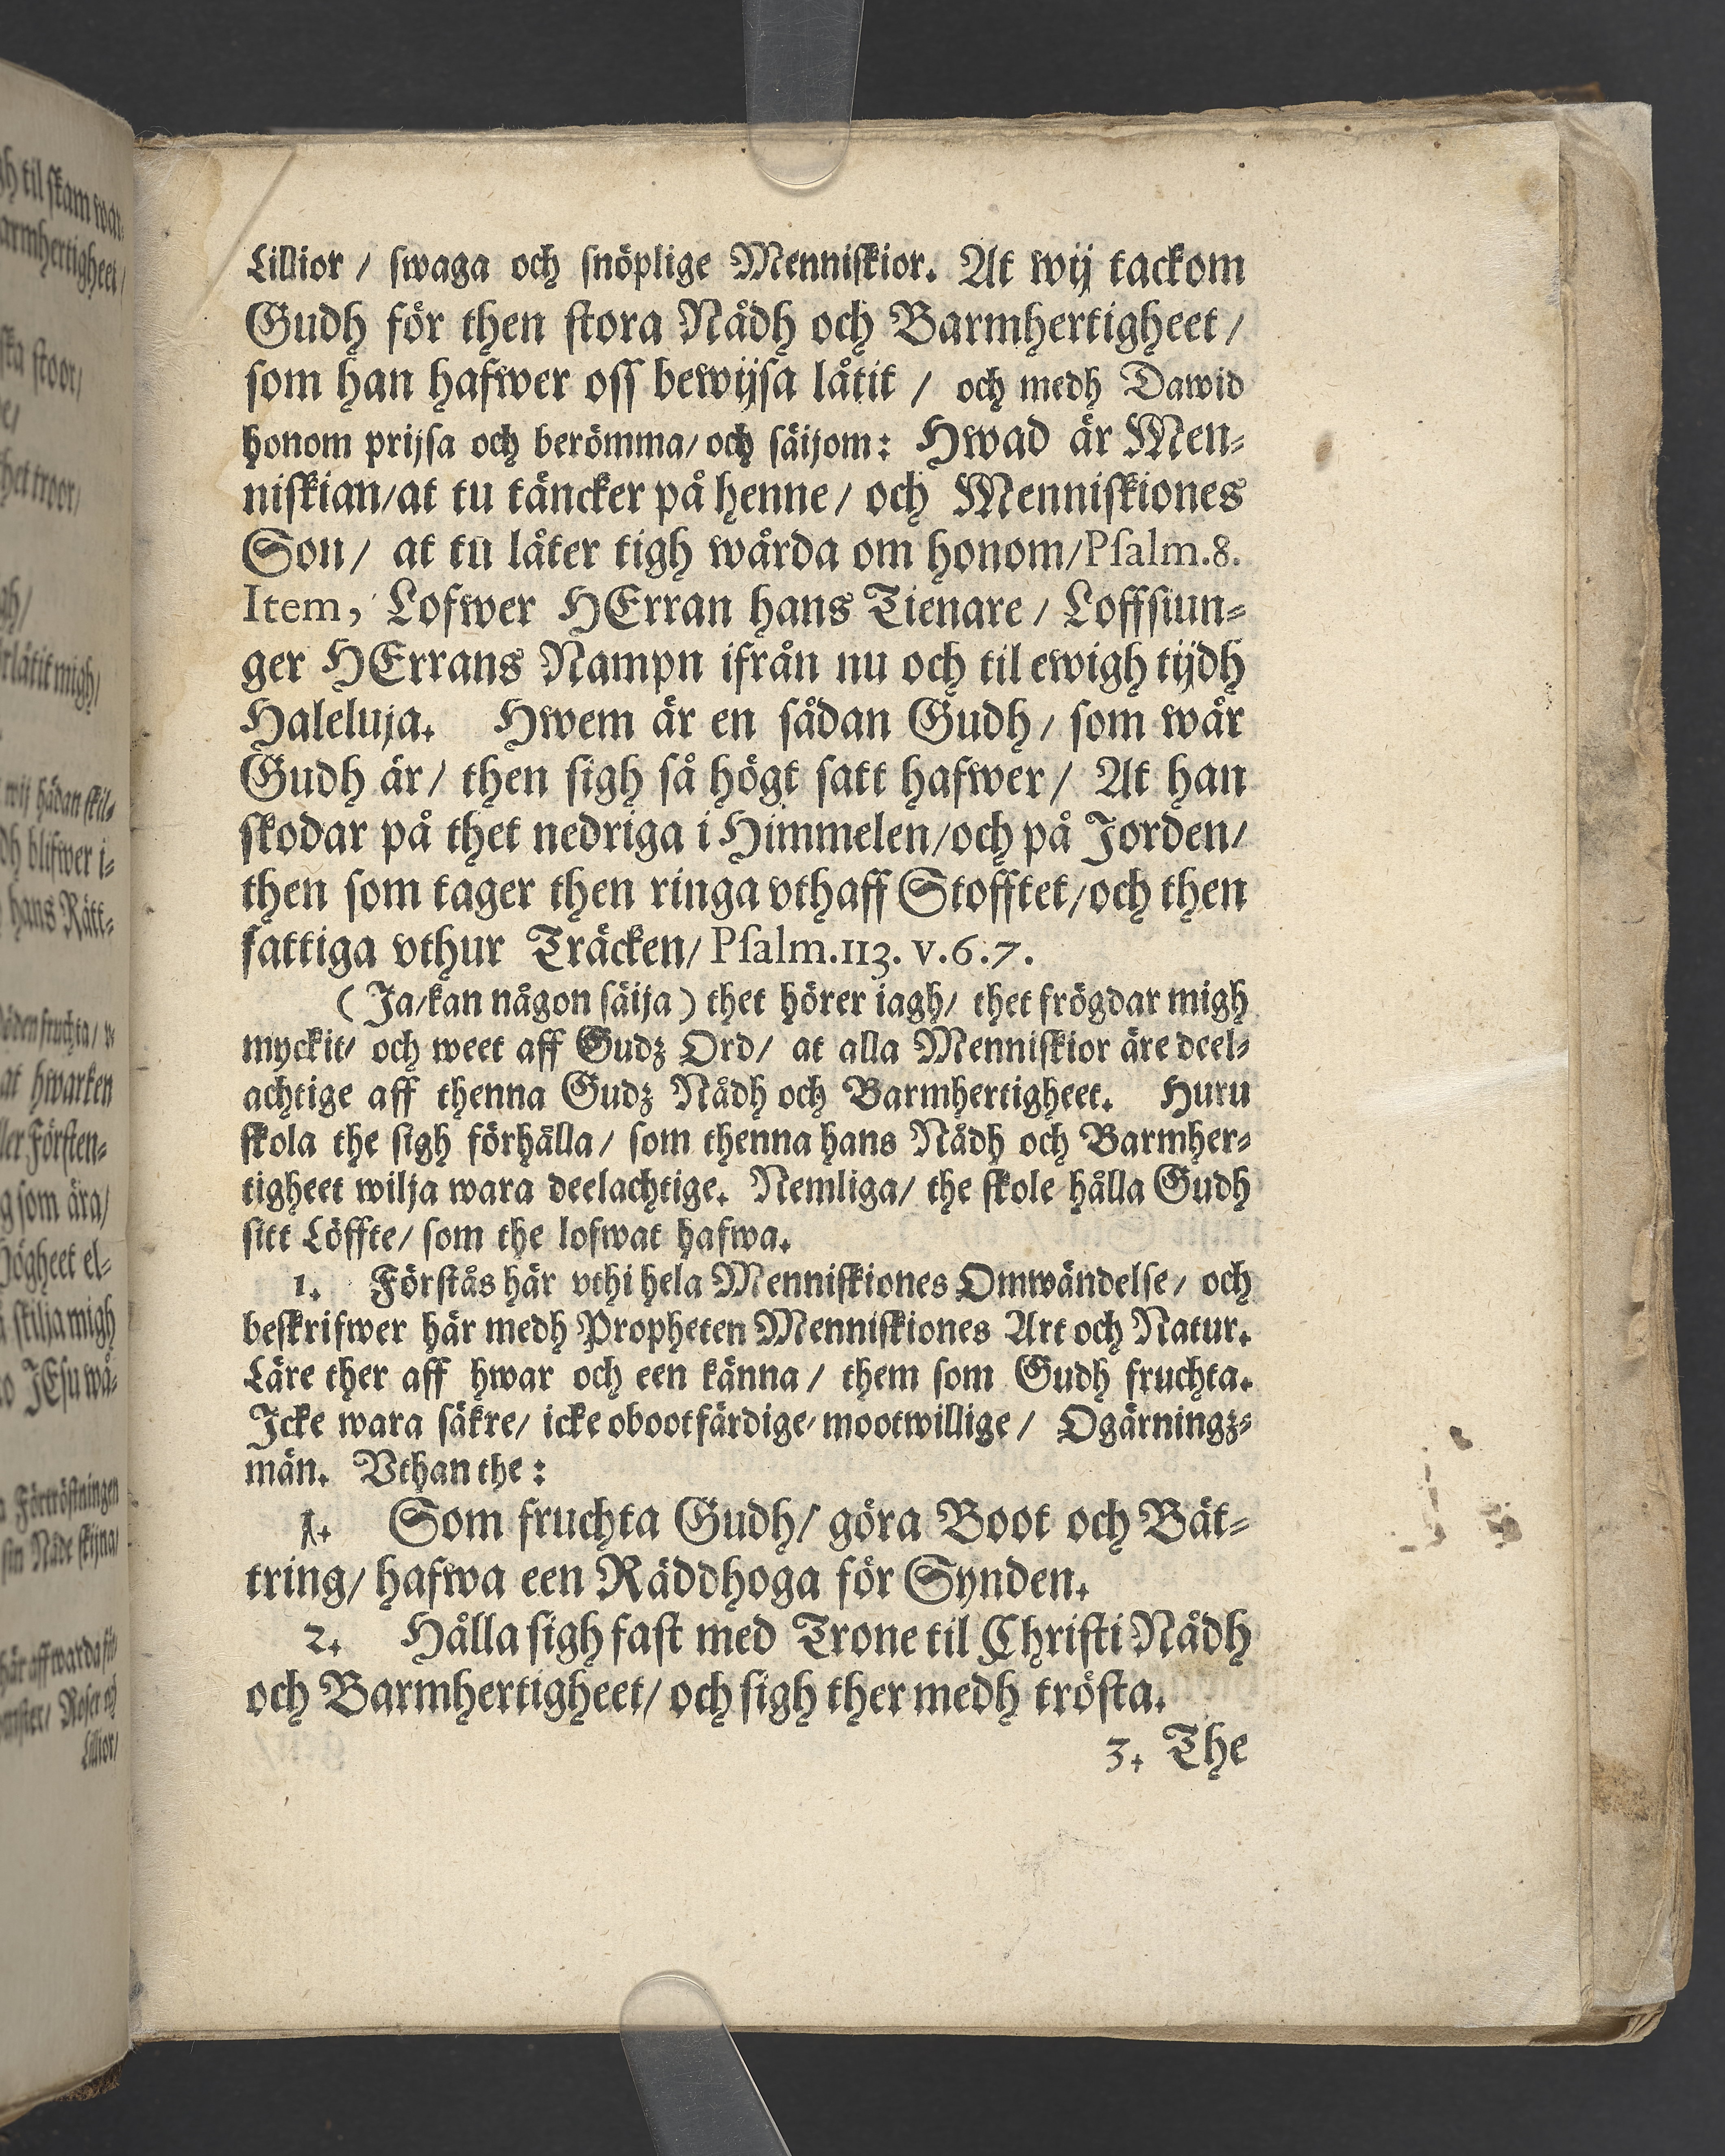 Lillior / swaga och snöplige Menniskior. At wij tackom
Gudh för then stora Nådh och Barmhertigheet /
som han hafwer oss bewijsa låtit / och medh Dawid
honom prijsa och berömma / och säijom: Hwad är Men-
niskian / at tu täncker på henne / och Menniskiones
Son / at tu låter tigh wårda om honom / Psalm. 8.
Item, Lofwer HErran hans Tienare / Loffsiun-
ger HErrans Nampn ifrån nu och til ewigh tijdh
Haleluja. Hwem är en sådan Gudh / som wår
Gudh är / then sigh så högt satt hafwer / At han
skodar på thet nedriga i Himmelen / och på Jorden /
then som tager then ringa vthaff Stofftet / och then
fattiga vthur Träcken / Psalm. 113. v. 6. 7.
( Ja / kan någon säija ) thet hörer iagh / thet frögdar migh
myckit / och weet aff Gudz Ord / at alla Menniskior äre deel-
achtige aff thenna Gudz Nådh och Barmhertigheet. Huru
skola the sigh förhålla / som thenna hans Nådh och Barmher-
tigheet wilja wara deelachtige. Nemliga / the skole hålla Gudh
sitt Löffte / som the lofwat hafwa.
1. Förstås här vthi hela Menniskiones Omwändelse / och
beskrifwer här medh Propheten Menniskiones Art och Natur.
Läre ther aff hwar och een känna / them som Gudh fruchta.
Icke wara säkre / icke obootfärdige / mootwillige / Ogärningz-
män. Vthan the :
1. Som fruchta Gudh / göra Boot och Bät-
tring / hafwa een Räddhoga för Synden.
2. Hålla sigh fast med Trone til Christi Nådh
och Barmhertigheet / och sigh ther medh trösta.
3. The